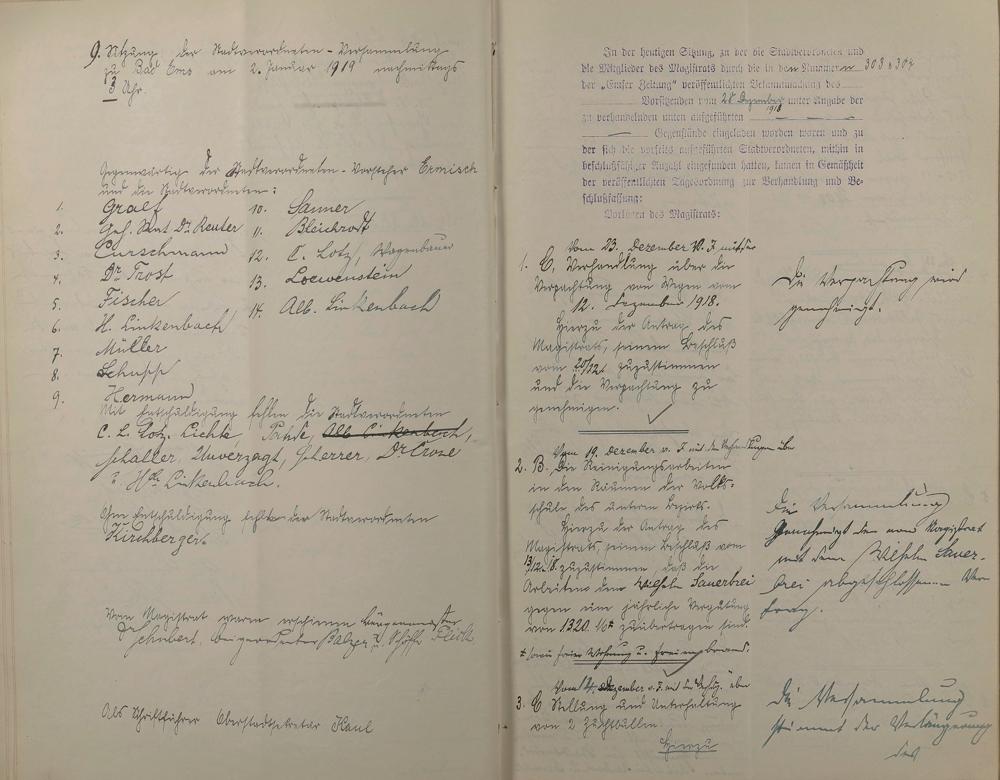 9. Sitzung der Stadtverordneten-Versammlung
zu Bad Ems am 2. Januar 1919 nachmittags
3 Uhr.
Gegenwärtig der Stadtverordneten-Vorsteher Ermisch
und die Stadtverordneten:
1. Graef
2. Geh. Rat Dr. Reuter
3. Curschmann
4. Dr. Trost
5. Fischer
6. H. Linkenbach
7. Müller
8. Schupp
9. Hermann
10. Sanner
11. Bleichrodt
12. C. Lotz, Wagenbauer
13. Loewenstein
14. Alb. Linkenbach
Mit Entschuldigung fehlen die Stadtverordneten
C. L. Lotz, Lichte, Alb. Linkenbach,
Schaller, Unverzagt, Scherrer, Dr. Crone
u. Linkenbach.
Ohne Entschuldigung fehlte der Stadtverordneten
Kirchberger.
Vom Magistrat waren erschienen Bürgermeister
Dr. Schubert, Beigeordneter Balzer u. Schöffe
Als Schriftführer Oberstadtsekretär Kaul
In der heutigen Sitzung, zu der die Stadtverordneten und
die Mitglieder des Magistrats durch die in den Nummern 303 u 304
der „Emser Zeitung" veröffentlichten Bekanntmachung des
Vorsitzenden vom 28 Dezember 1918 unter Angabe der
zu verhandelnden unten aufgeführten
Gegenstände eingeladen worden waren und zu
der sich die vorseits aufgeführten Stadtverordneten, mithin in
beschlußfähiger Anzahl eingefunden hatten, kamen in Gemäßheit
der veröffentlichten Tagesordnung zur Verhandlung und Be-
schlußfassung:
Vorlagen des Magistrats:
Vom 23. Dezember v. J. mit
1. C. Verhandlung über die
Verpachtung von Wegen vom
12. Dezember 1918.
Hierzu der Antrag des
Magistrats, seinem Beschluß
vom 20/12. zuzustimmen
und die Verpachtung zu
genehmigen.
Die Verpachtung wird
genehmigt.
Vom 19. Dezember v. J. mit den Verhandlungen über
2. B. Die Reinigungsarbeiten
in den Räumen der Volks-
schule des unteren Bezirks.
Hierzu der Antrag des
Magistrats, seinem Beschluß vom
13/12. 18. zuzustimmen, daß die
Arbeiten dem Wilhelm Sauerbrei
gegen eine jährliche Vergütung
von 1320 M. zu übertragen sind.
+ sowie freier Wohnung u. freien Brand.
Die Versammlung
genehmigt den vom Magistrat
mit dem Wilhelm Sauer-
brei abgeschlossenen Ver-
trag.
Vom 14. Dezember v. J. mit über
3. C Stellung und Unterhaltung
von 2 Zuchtbullen.
Hierzu
Die Versammlung
stimmt der Verlängerung
des